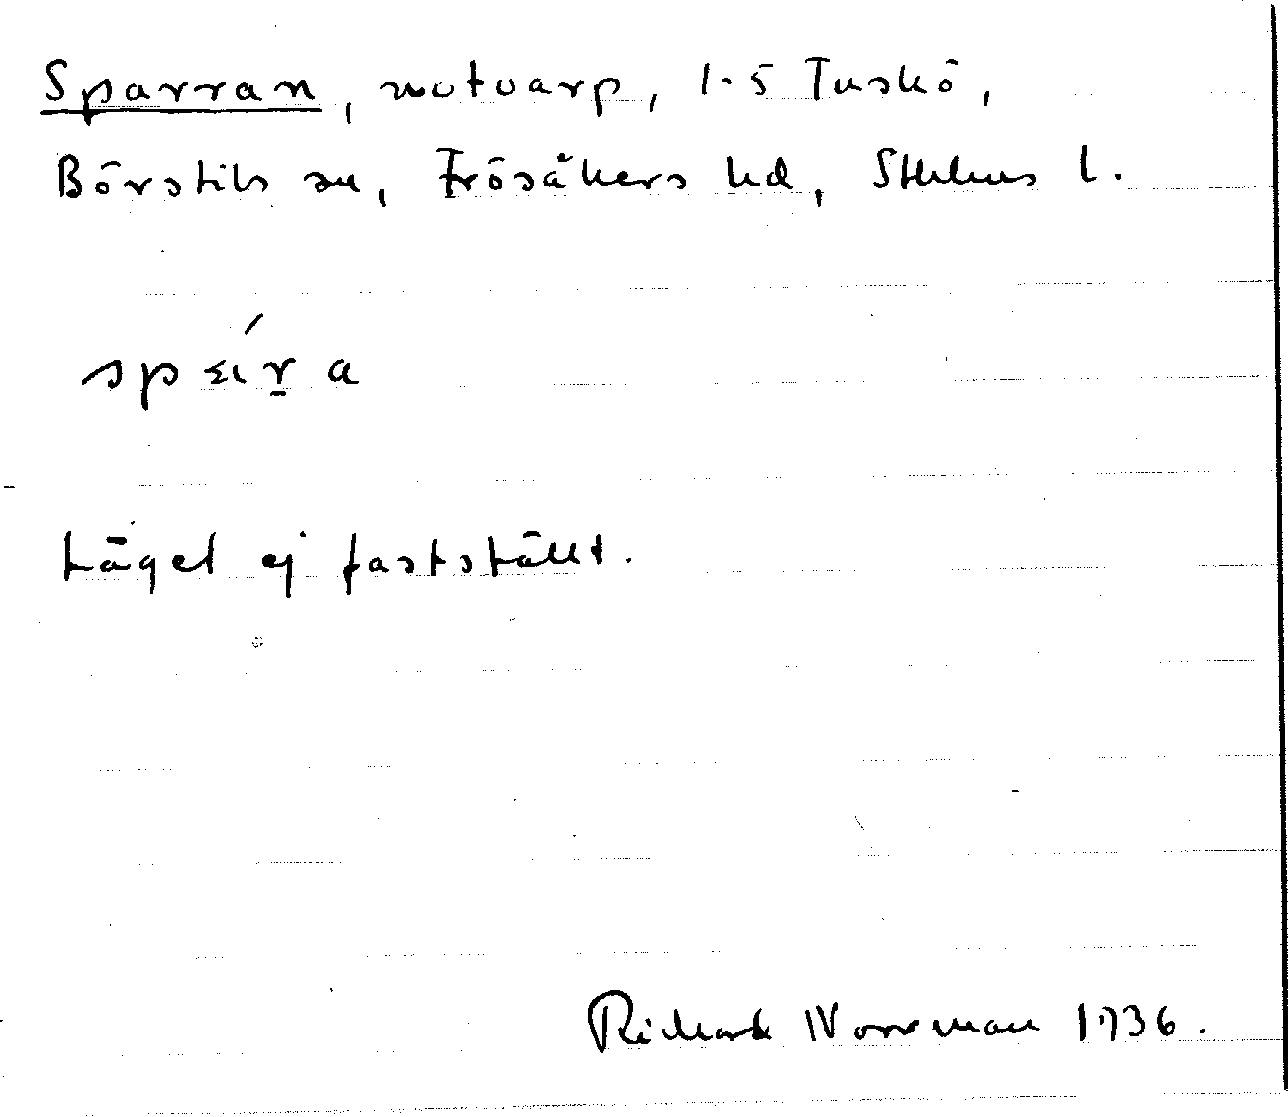 Sparran, notvarp, 1-5 Tuskö,
Börstils sn, Frösåkers hd, Sthlms l.
Läget ej fastställt.
Richard Norrman 1936.